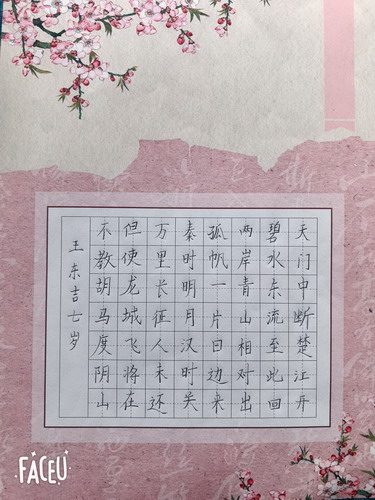 天门中断楚江开
碧水东流至此回
两岸青山相对出
孤帆一片日边来
秦时明月汉时关
万里长征人未还
但使龙城飞将在
不教胡马度阴山
王东吉七岁
FACEU